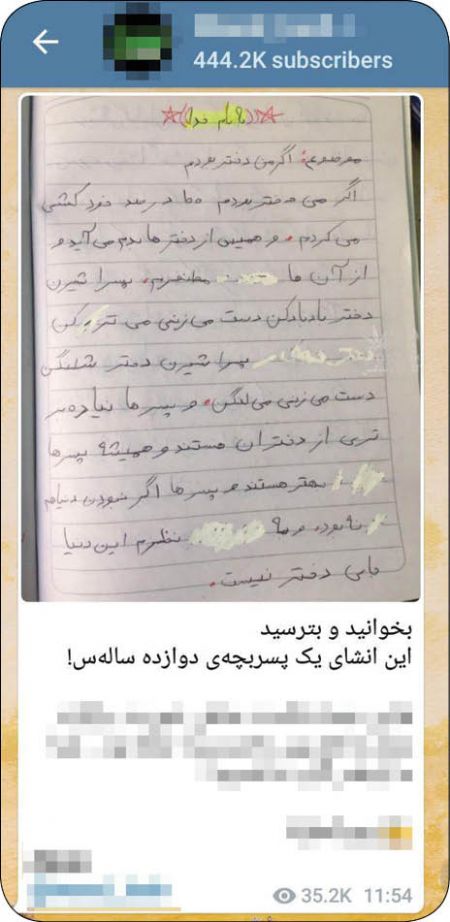 444.2K subscribers
(به نام خدا)
موضوع: اگر من دختر بودم
اگر من دختر بودم ۱۰۰ درصد خودکشی
می کردم. و همین از دختر ها بدم می آید و
از آن ها متنفرم. پسرا شیرن
دختر بادبادکن دست می زنی می ترکن
پسرا شیرن دختر شلنگن
دست می زنی می لنگن. و پسر ها
تری از دختران هستند و همیشه پسرها
بهتر هستند و پسر ها اگر نبودن دنیام
نبود. و به نظرم این دنیا
جای دختر نیست.
بخوانید و بترسید
این انشای یک پسربچه‌ی دوازده ساله‌س!
35.2K 11:54